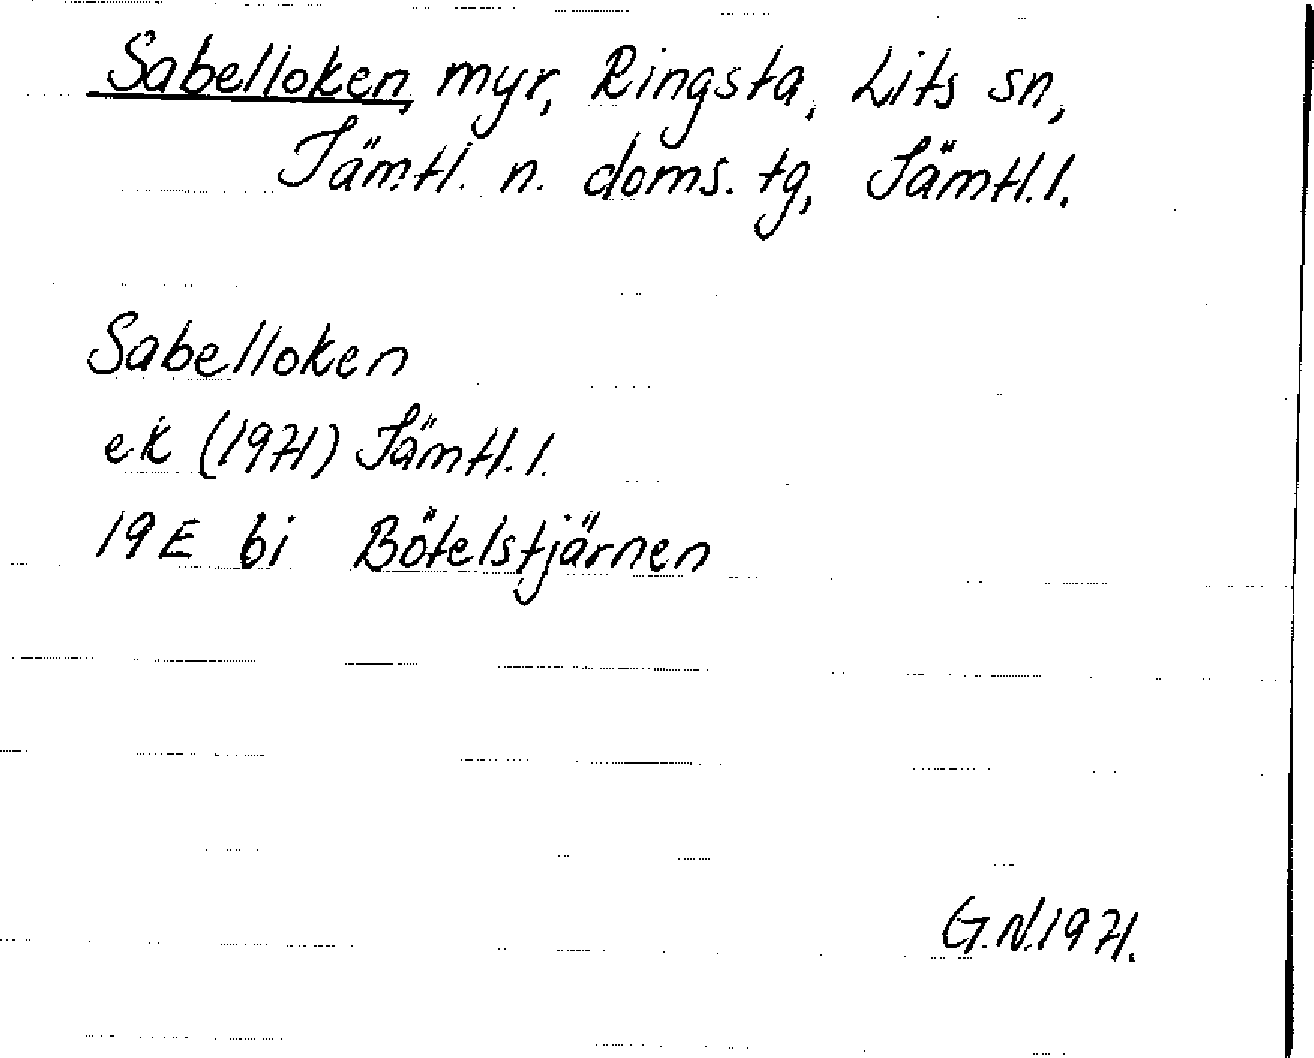 Sabelloken, myr, Ringsta, Lits sn,
Jämtl. n. doms. tg, Jämtl. l.
Sabelloken
ek (1971) Jämtl. l.
19 E bi Bötelstjärnen
G.N. 1971.